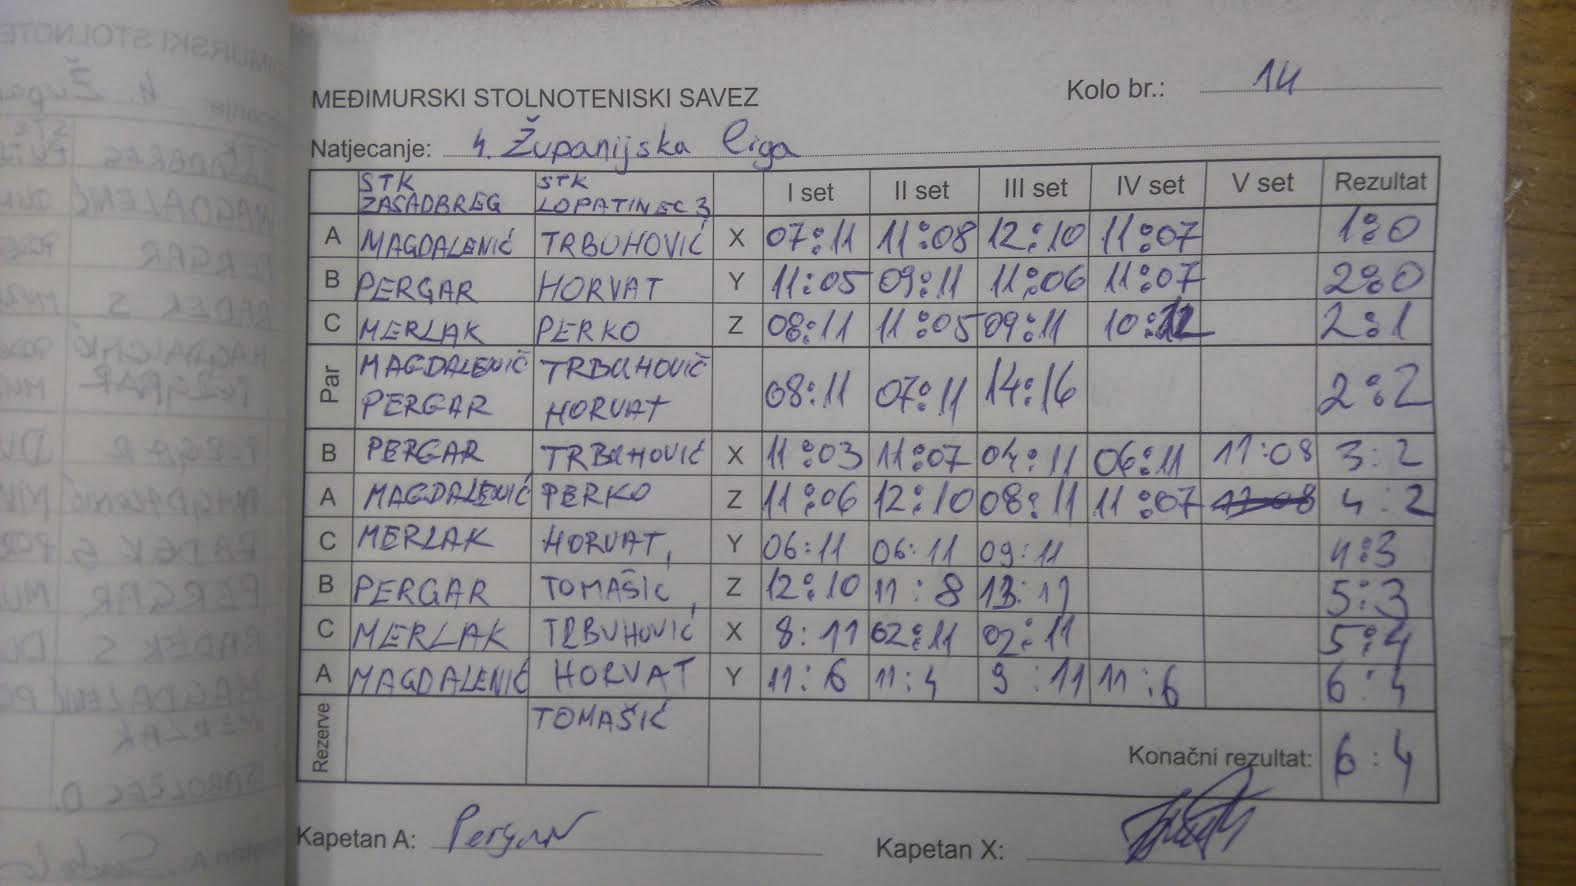 MEĐIMURSKI STOLNOTENISKI SAVEZ
Kolo br.: 14
Natjecanje: 4. Županijska liga
STK ZASADBREG STK LOPATINEC 3 I set II set III set IV set V set Rezultat
A MAGDALENIĆ TRBUHOVIĆ X 07:11 11:08 12:10 11:07 1:0
B PERGAR HORVAT Y 11:05 09:11 11:06 11:07 2:0
C MERLAK PERKO Z 08:11 11:05 09:11 10:12 2:1
Par MAGDALENIĆ PERGAR TRBUHOVIĆ HORVAT 08:11 07:11 14:16 2:2
B PERGAR TRBUHOVIĆ X 11:03 11:07 04:11 06:11 11:08 3:2
A MAGDALENIĆ PERKO Z 11:06 12:10 08:11 11:07 4:2
C MERLAK HORVAT Y 06:11 06:11 09:11 4:3
B PERGAR TOMAŠIĆ Z 12:10 11:8 13:11 5:3
C MERLAK TRBUHOVIĆ X 8:11 02:11 02:11 5:4
A MAGDALENIĆ HORVAT Y 11:6 11:4 9:11 11:6 6:4
Rezerve TOMAŠIĆ
Konačni rezultat: 6:4
Kapetan A: Pergar
Kapetan X: